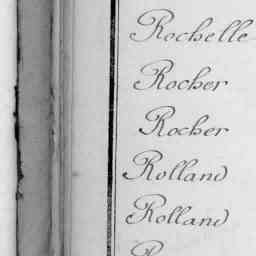 Rochelle
Rocher
Rocher
Rolland
Rolland